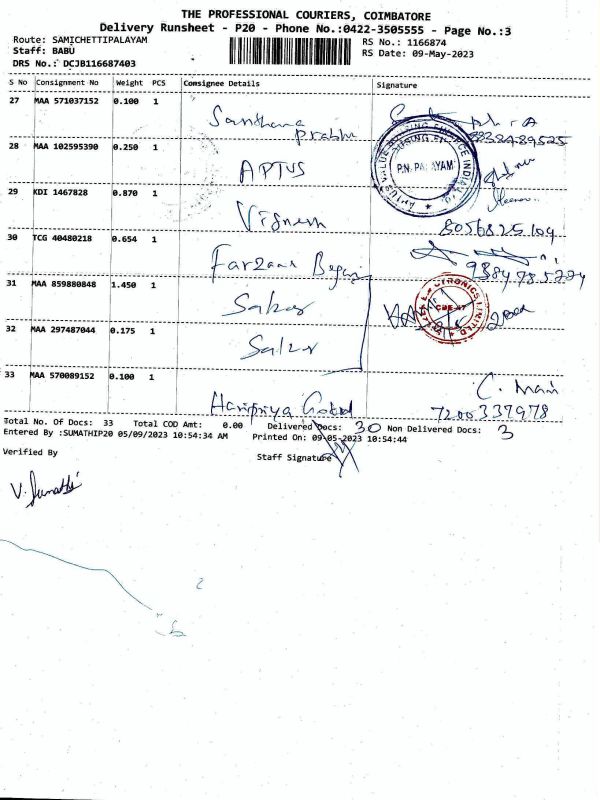 THE PROFESSIONAL COURIERS, COIMBATORE
Delivery Runsheet - P20 - Phone No.:0422-3505555 - Page No.:3
Route: SAMICHETTIPALAYAM
Staff: BABU
DRS No.: DCJB116687403
RS No.: 1166874
RS Date: 09-May-2023
S No Consignment No Weight PCS Consignee Details Signature
27 MAA 571037152 0.100 1 Santhana Prabhu
28 MAA 102595390 0.250 1 APTUS
APTUS VALUE HOUSING FINANCE INDIA
P.N. PALAYAM
29 KDI 1467828 0.870 1 Vignesh 8056825104
30 TCG 40480218 0.654 1 Farzana Begam
31 MAA 859880848 1.450 1
32 MAA 297487044 0.175 1
33 MAA 570089152 0.100 1 Haripriya C. Mani
7200337978
Total No. Of Docs: 33 Total COD Amt: 0.00 Delivered Docs: 30 Non Delivered Docs: 3
Entered By :SUMATHIP20 05/09/2023 10:54:34 AM Printed On: 09-05-2023 10:54:44
Verified By Staff Signature
V. Sumathi